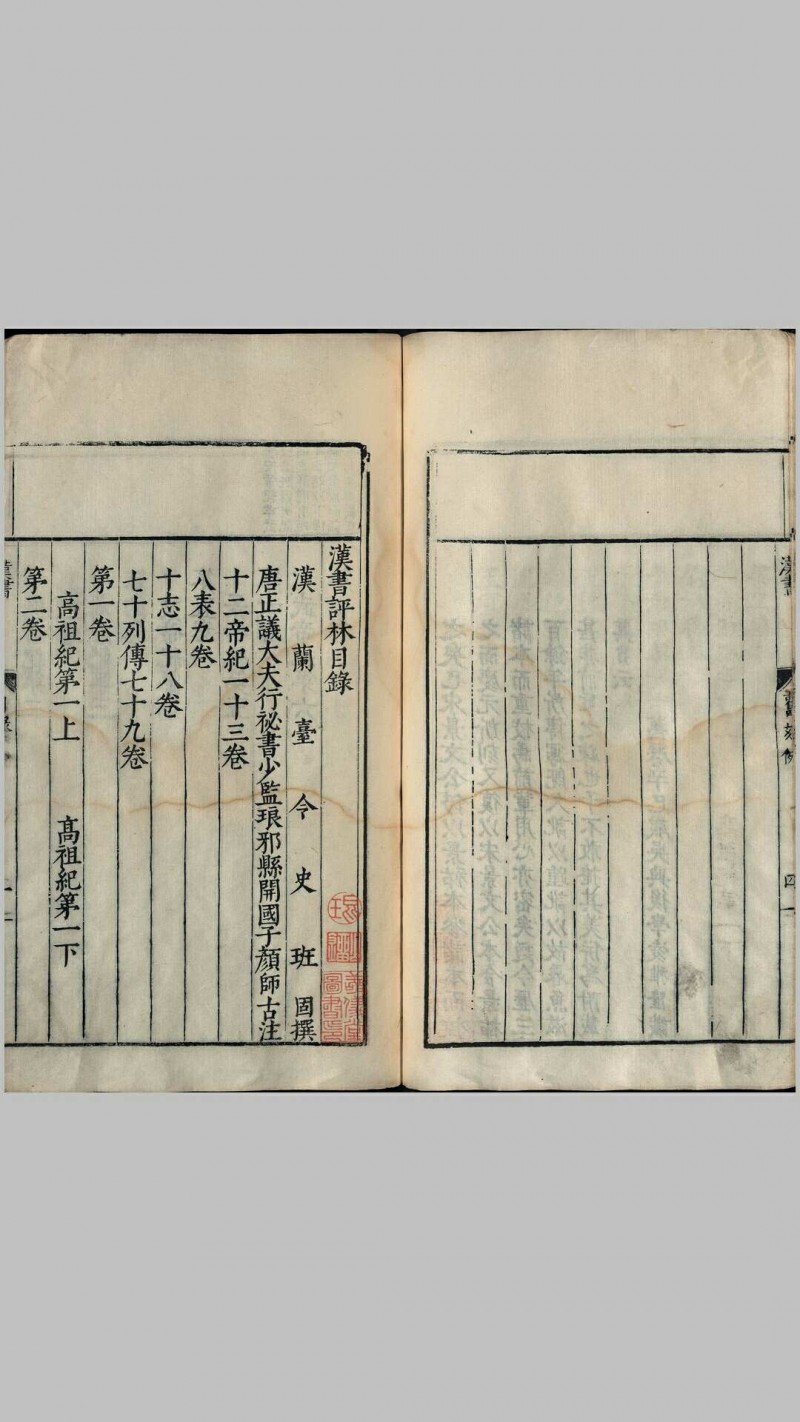 漢書
四
漢書評林目錄
漢蘭臺令史班固撰
唐正議大夫行祕書少監琅邪縣開國子顏師古注
十二帝紀一十三卷
八表九卷
十志一十八卷
七十列傳七十九卷
第一卷
高祖紀第一上　高祖紀第一下
第二卷